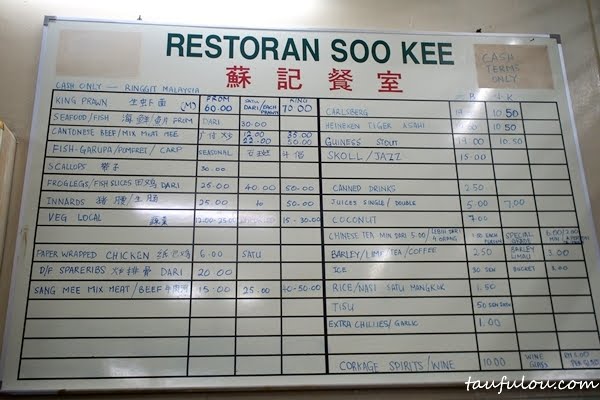 RESTORAN SOO KEE
蘇記餐室
CASH TERMS ONLY
CASH ONLY — RINGGIT MALAYSIA
KING PRAWN 生虫 面 (M) FROM 60.00 KING 70.00
SEAFOOD/FISH 海鲜 FROM DARI 30.00
CANTONESE BEEF/MIX MEAT MEE 12.00 22.00 35.00 50.00
FISH-GARUPA/POMFRET/ CARP SEASONAL
SCALLOPS 带子 30.00
FROGLEGS/FISH SLICES 田鸡 DARI 25.00 40.00 50.00
INNARDS 猪 25.00 50.00
VEG LOCAL 蔬菜 12.00-25.00 15-30.00
PAPER WRAPPED CHICKEN 纸包鸡 6.00 SATU
D/F SPARERIBS 炒排骨 DARI 20.00
SANG MEE MIX MEAT/BEEF 15.00 25.00 40-50.00
CARLSBERG 10.50
HEINEKEN TIGER ASAHI 10.50
GUINESS STOUT 10.50
SKOLL/JAZZ 15.00
CANNED DRINKS 2.50
JUICES SINGLE/DOUBLE 5.00 7.00
COCONUT 7.00
CHINESE TEA MIN DARI 5.00/LEBIH DARI 4 ORANG SPECIAL GRADE
BARLEY/LIME TEA/COFFEE 2.50 BARLEY LIMAU 3.00
ICE 30 SEN BUCKET 3.00
RICE/NASI SATU MANGKUK 1.50
TISU 50 SEN
EXTRA CHILLIES/GARLIC 1.00
CORKAGE SPIRITS/WINE 10.00 WINE GLASS
taufulou.com